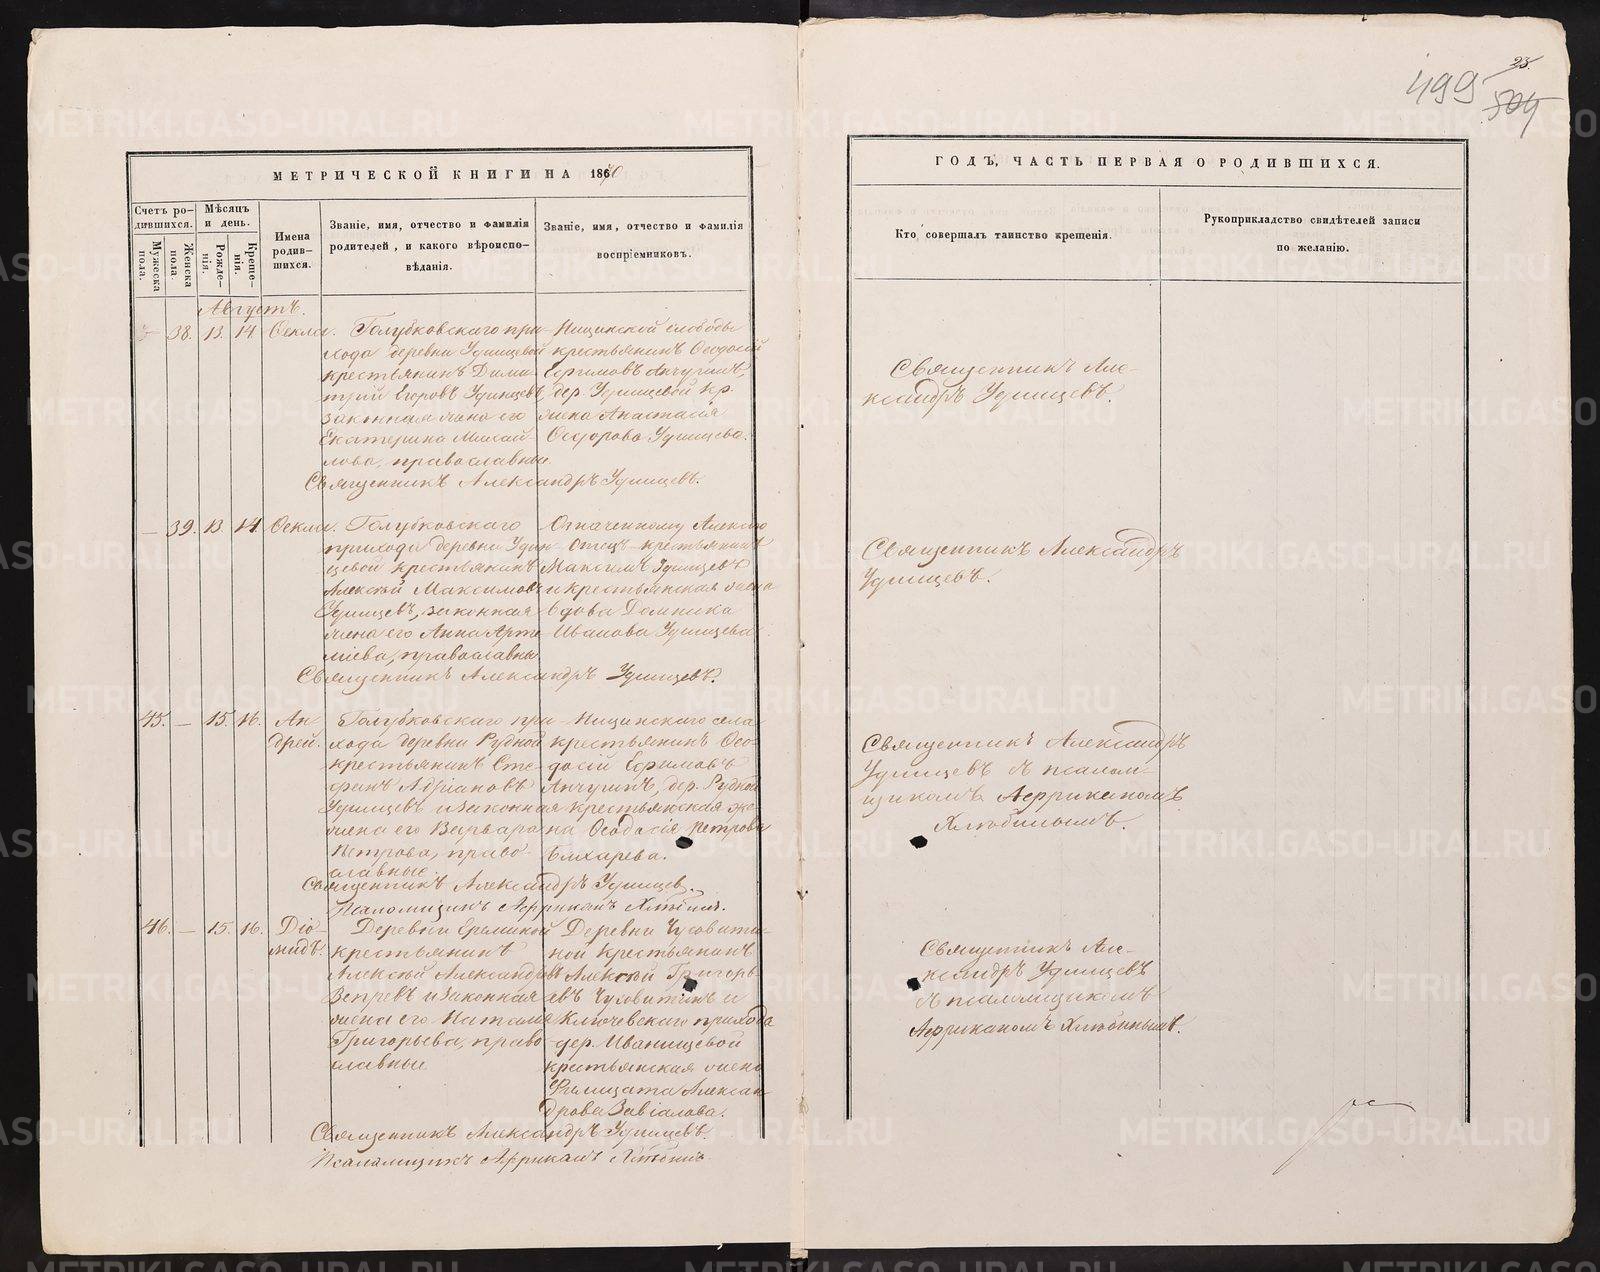 23.
499
504
МЕТРИЧЕСКОЙ КНИГИ НА 1870
Счетъ ро-
дившихся.
Мужеска пола.
Женска пола.
Мѣсяцъ
и день.
Рожде-
нія.
Креще-
нія.
Имена
родив-
шихся.
Званіе, имя, отчество и фамилія
родителей, и какого вѣроиспо-
вѣданія.
Званіе, имя, отчество и фамилія
воспріемниковъ.
Августъ.
38. 13. 14. Ѳекла.
Голубковскаго при-
хода деревни Удинцевой
крестьянинъ Дими-
трій Егоровъ Удинцевъ,
законная жена его
Екатерина Михай-
лова, православные.
Ницинской слободы
крестьянинъ Ѳеодосій
Ефимовъ Анчугинъ,
дер. Удинцевой кр.
жена Анастасія
Ѳедорова Удинцева.
Священникъ Александръ Удинцевъ.
— 39. 13. 14. Ѳекла.
Голубковскаго
прихода деревни Удин-
цевой крестьянинъ
Алексѣй Максимовъ
Удинцевъ, законная
жена его Анна Арте-
міева, православные.
Означенному Алексѣю
Отецъ крестьянинъ
Максимъ Удинцевъ
и крестьянская жена
вдова Домника
Иванова Удинцева.
Священникъ Александръ Удинцевъ.
45. — 15. 16. Ан-
дрей.
Голубковскаго при-
хода деревни Рудной
крестьянинъ Сте-
фанъ Адріановъ
Удинцевъ и законная
жена его Варвара
Петрова, право-
славные.
Ницинскаго села
крестьянинъ Ѳео-
досій Ефимовъ
Анчугинъ, дер. Рудной
крестьянская же-
на Ѳеодосія Петрова
Священникъ Александръ Удинцевъ.
Псаломщикъ Африканъ Хлюбинъ.
46. — 15. 16. Діо-
мидъ.
Деревни Ереминой
крестьянинъ
Алексѣй Александровъ
Вепревъ и законная
жена его Наталія
Григорьева, право-
славные
Деревни Чусовити-
ной крестьянинъ
Алексѣй Григорь-
евъ Чусовитинъ и
Ключевскаго прихода
дер. Иванищевой
крестьянская жена
Фелицата Алексан-
дрова Завіалова.
Священникъ Александръ Удинцевъ.
Псаломщикъ Африканъ Хлюбинъ.
ГОДЪ, ЧАСТЬ ПЕРВАЯ О РОДИВШИХСЯ.
Кто совершалъ таинство крещенія.
Рукоприкладство свидѣтелей записи
по желанію.
Священникъ Але-
ксандръ Удинцевъ.
Священникъ Александръ
Удинцевъ.
Священникъ Александръ
Удинцевъ съ псалом-
щикомъ Африканомъ
Хлюбинымъ.
Священникъ Але-
ксандръ Удинцевъ
съ псаломщикомъ
Африканомъ Хлюбинымъ.
METRIKI.GASO-URAL.RU